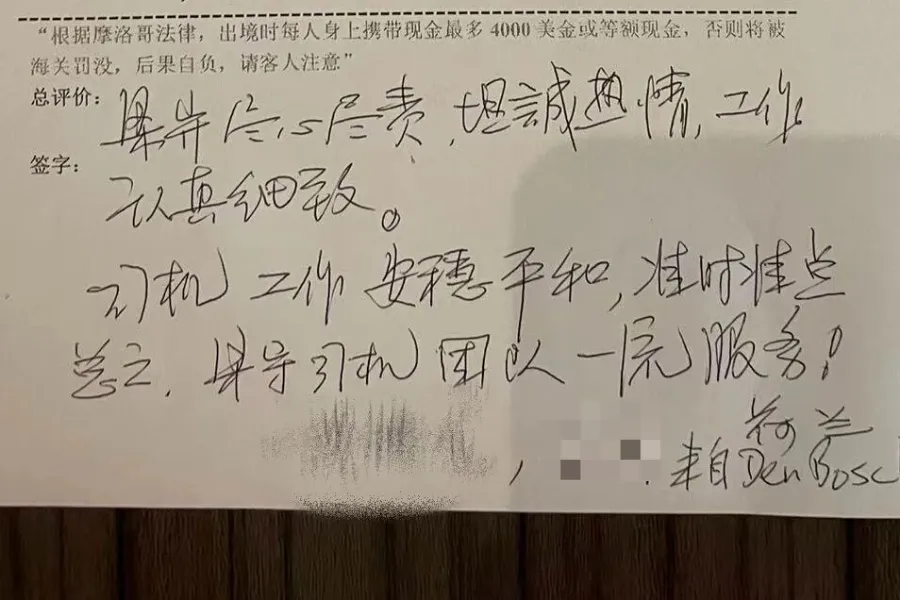 “根据摩洛哥法律，出境时每人身上携带现金最多 4000 美金或等额现金，否则将被
海关罚没，后果自负，请客人注意”
总评价：
导尽心尽责，坦誠热情，工作
签字：
认真细致。
司机工作安穩平和，准时准点
总之，导司机团队一流服务！
荷兰
，. 来自 Den Bosc